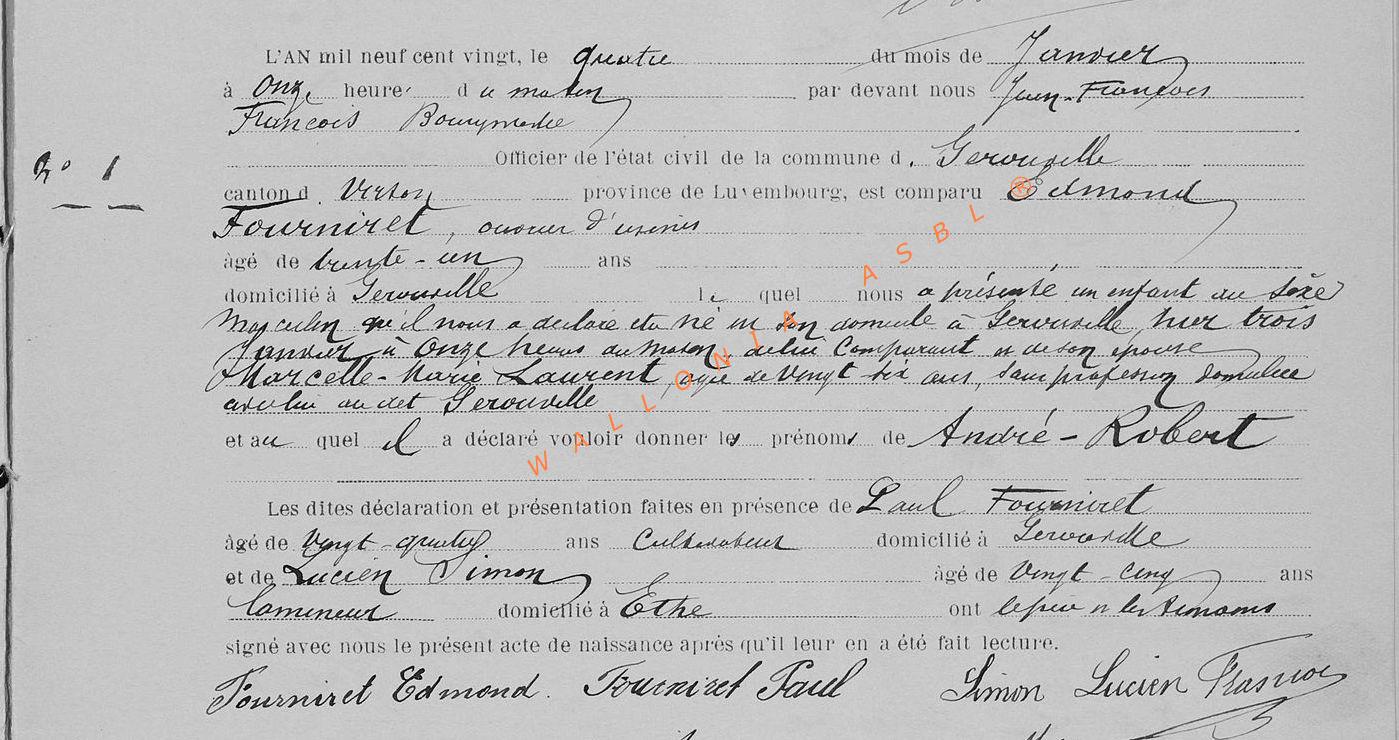 L'AN mil neuf cent vingt, le quatre du mois de Janvier
à Onze heure du matin par devant nous Jean-François
François
N° 1
Officier de l'état civil de la commune d. Gerouville
canton d Virton province de Luxembourg, est comparu Edmond
Fourniret, ouvrier d'usines
âgé de trente-un ans
domicilié à Gerouville le quel nous a présenté un enfant du sexe
Masculin qu'il nous a déclaré être né en son domicile à Gerouville, hier trois
Janvier à Onze heures du matin, de lui Comparant et de son épouse
Marcelle-Marie Laurent, agée de vingt six ans, sans profession domiciliée
avec lui au dit Gerouville
et au quel il a déclaré vouloir donner les prénoms de André-Robert
Les dites déclaration et présentation faites en présence de Paul Fourniret
âgé de Vingt-quatre ans Cultivateur domicilié à Gerouville
et de Lucien Simon âgé de Vingt-cinq ans
lamineur domicilié à Ethe ont le père et les témoins
signé avec nous le présent acte de naissance après qu'il leur en a été fait lecture.
Fourniret Edmond. Fourniret Paul Simon Lucien
WALLONIA ASBL ®